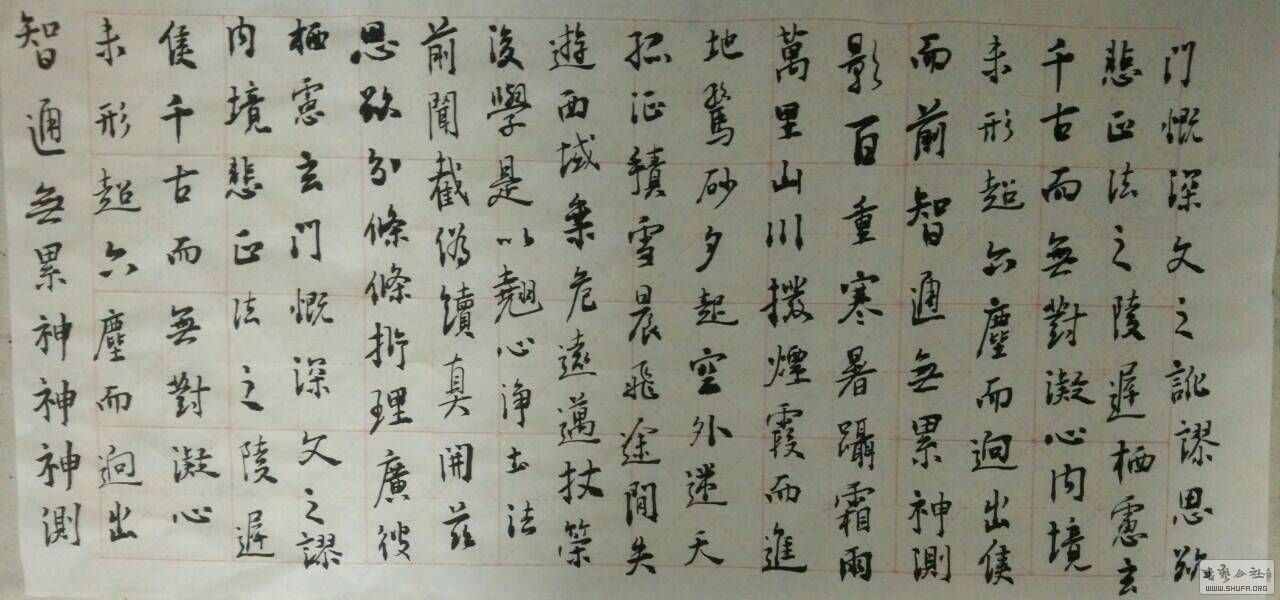 智通無累神神神測
未形超六塵而迥出
隻千古而無對凝心
內境悲正法之陵遲
栖慮玄門慨深文之謬
思欲分條條析理廣彼
前聞截偽續真開茲
後學是以翹心淨土法
遊西域乘危遠邁杖策
孤征積雪晨飛途間失
地驚砂夕起空外迷天
萬里山川撥煙霞而進
影百重寒暑躡霜雨
而前智通無累神測
未形超六塵而迥出隻
千古而無對凝心內境
悲正法之陵遲栖慮玄
門慨深文之訛謬思欲
WWW.SHUFA.ORG